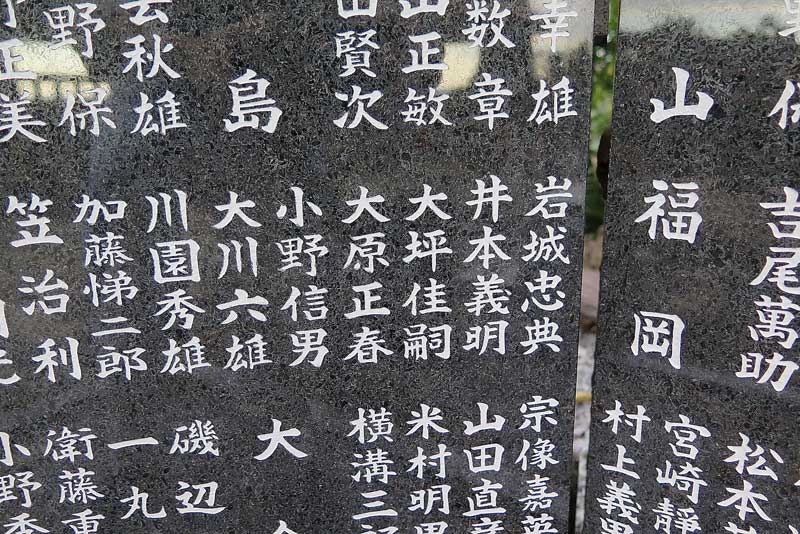 山
吉尾萬助
福岡
松本
宮崎靜
村上義男
幸雄
数章
山正敏
田賢次
島
雲秋雄
野保
正美
岩城忠典
井本義明
大坪佳嗣
大原正春
小野信男
大川六雄
川園秀雄
加藤悌二郎
笠治利
宗像嘉英
山田直
米村明男
横溝三
大
磯辺
一丸
衛藤重
小野秀